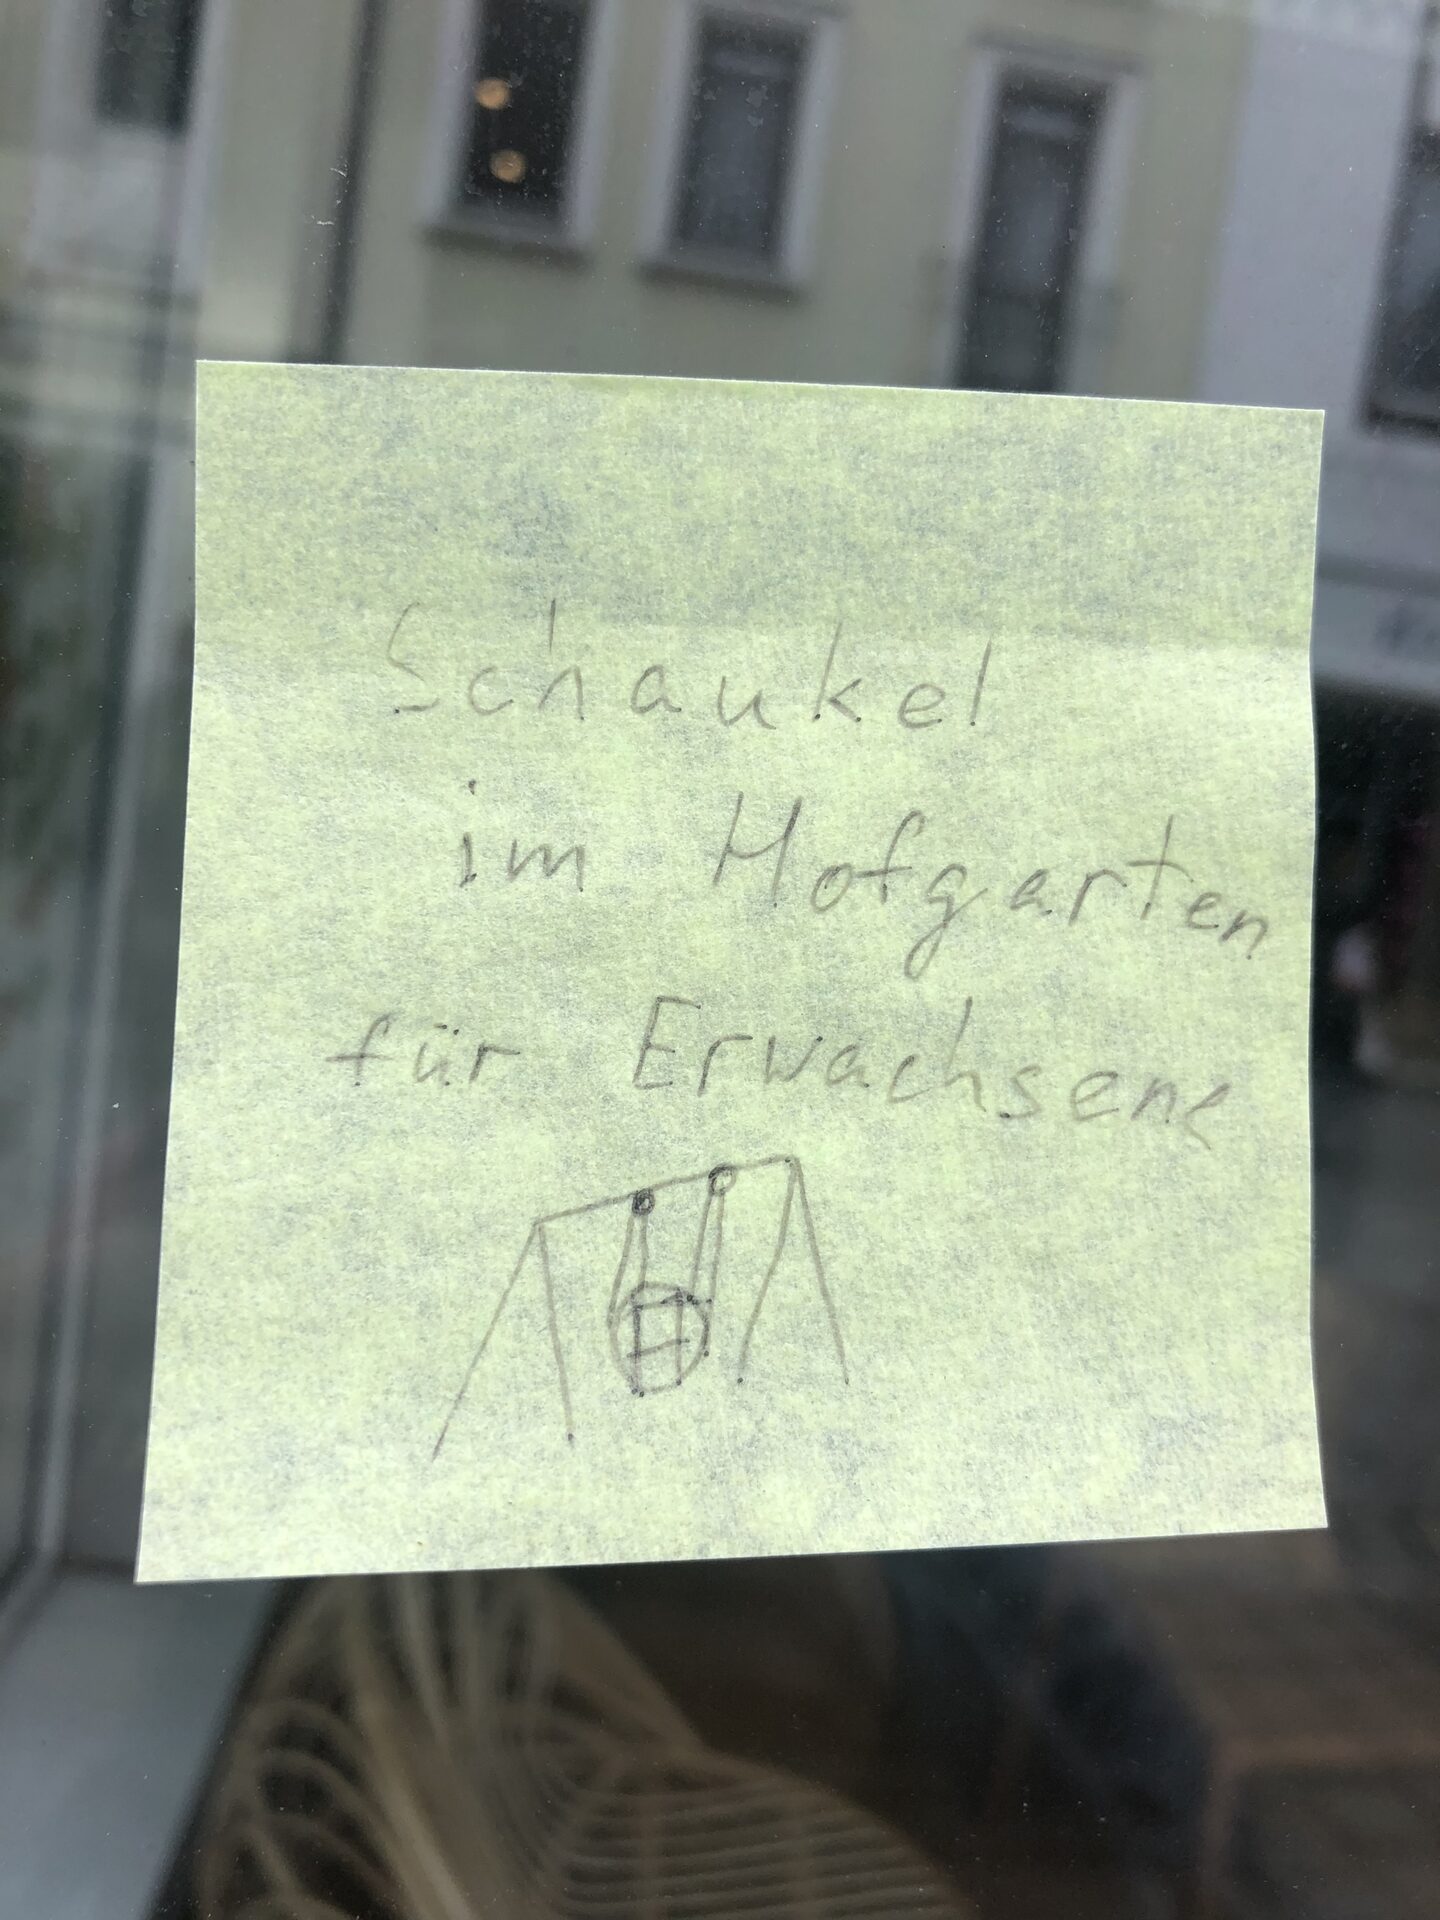 Schaukel
im Hofgarten
für Erwachsene